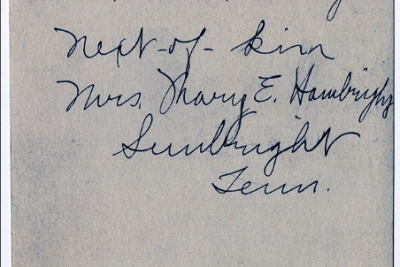 Next-of-kin
Mrs. Mary E. Hambright
Sunbright
Tenn.